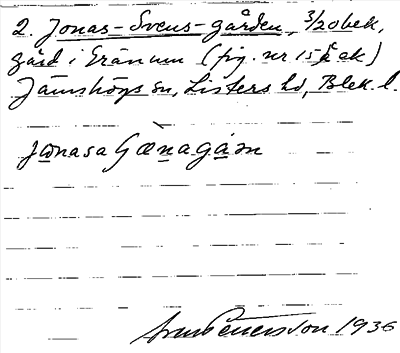 2. Jonas-Svens-gården, 3/20 bek,
gård i Gränum (fig. nr 15 Å ek)
Jämshögs sn, Listers hd, Blek. l.
Sven Petersson 1936